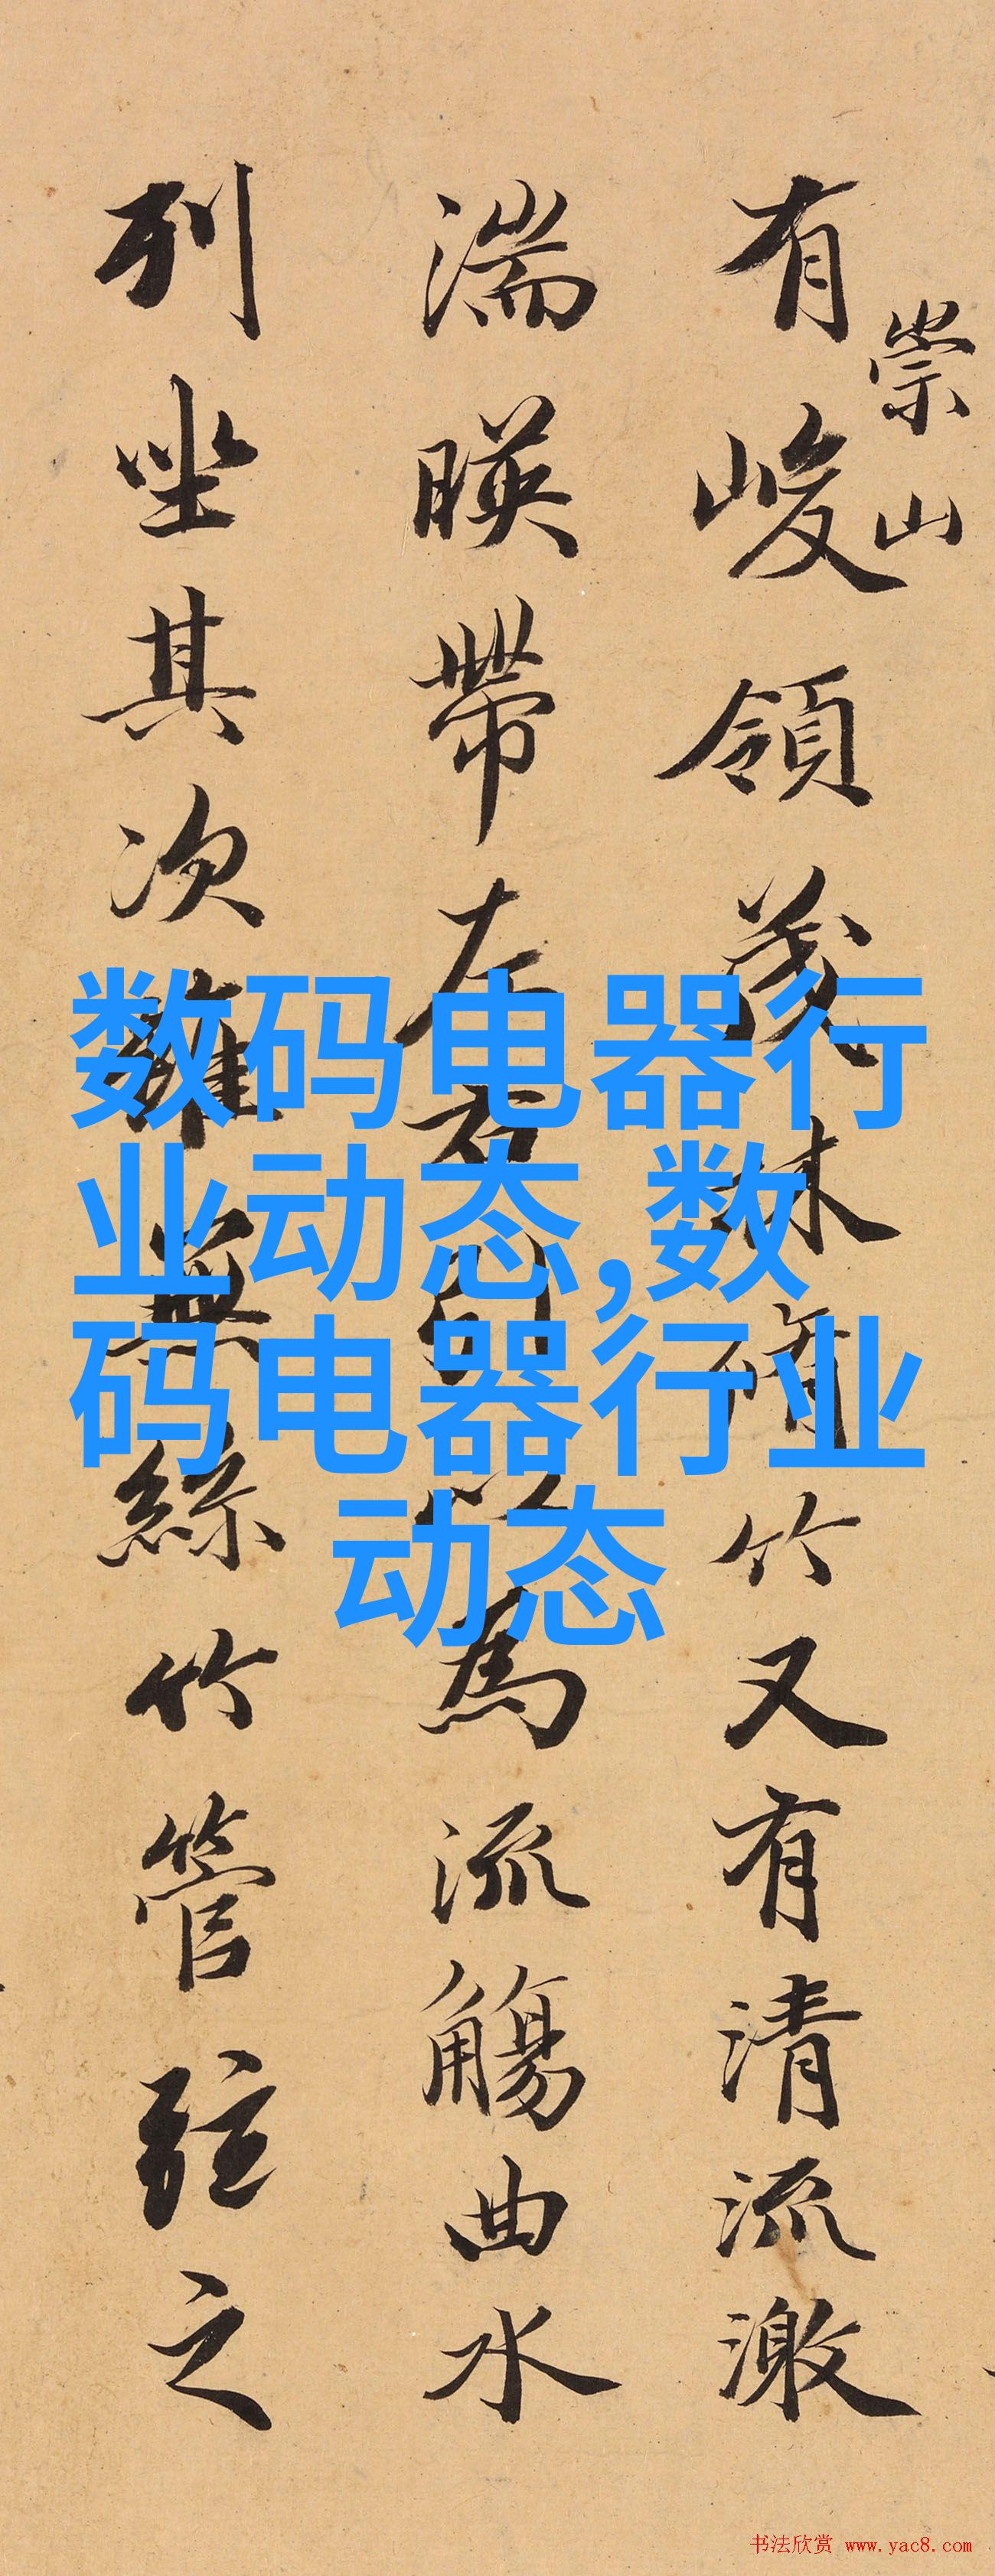 崇山
有峻領茂林脩竹又有清流激
湍暎帶左右引以為流觴曲水
列坐其次雖無絲竹管弦之
数码电器行
业动态,数
码电器行业
动态
书法欣赏 www.yac8.com